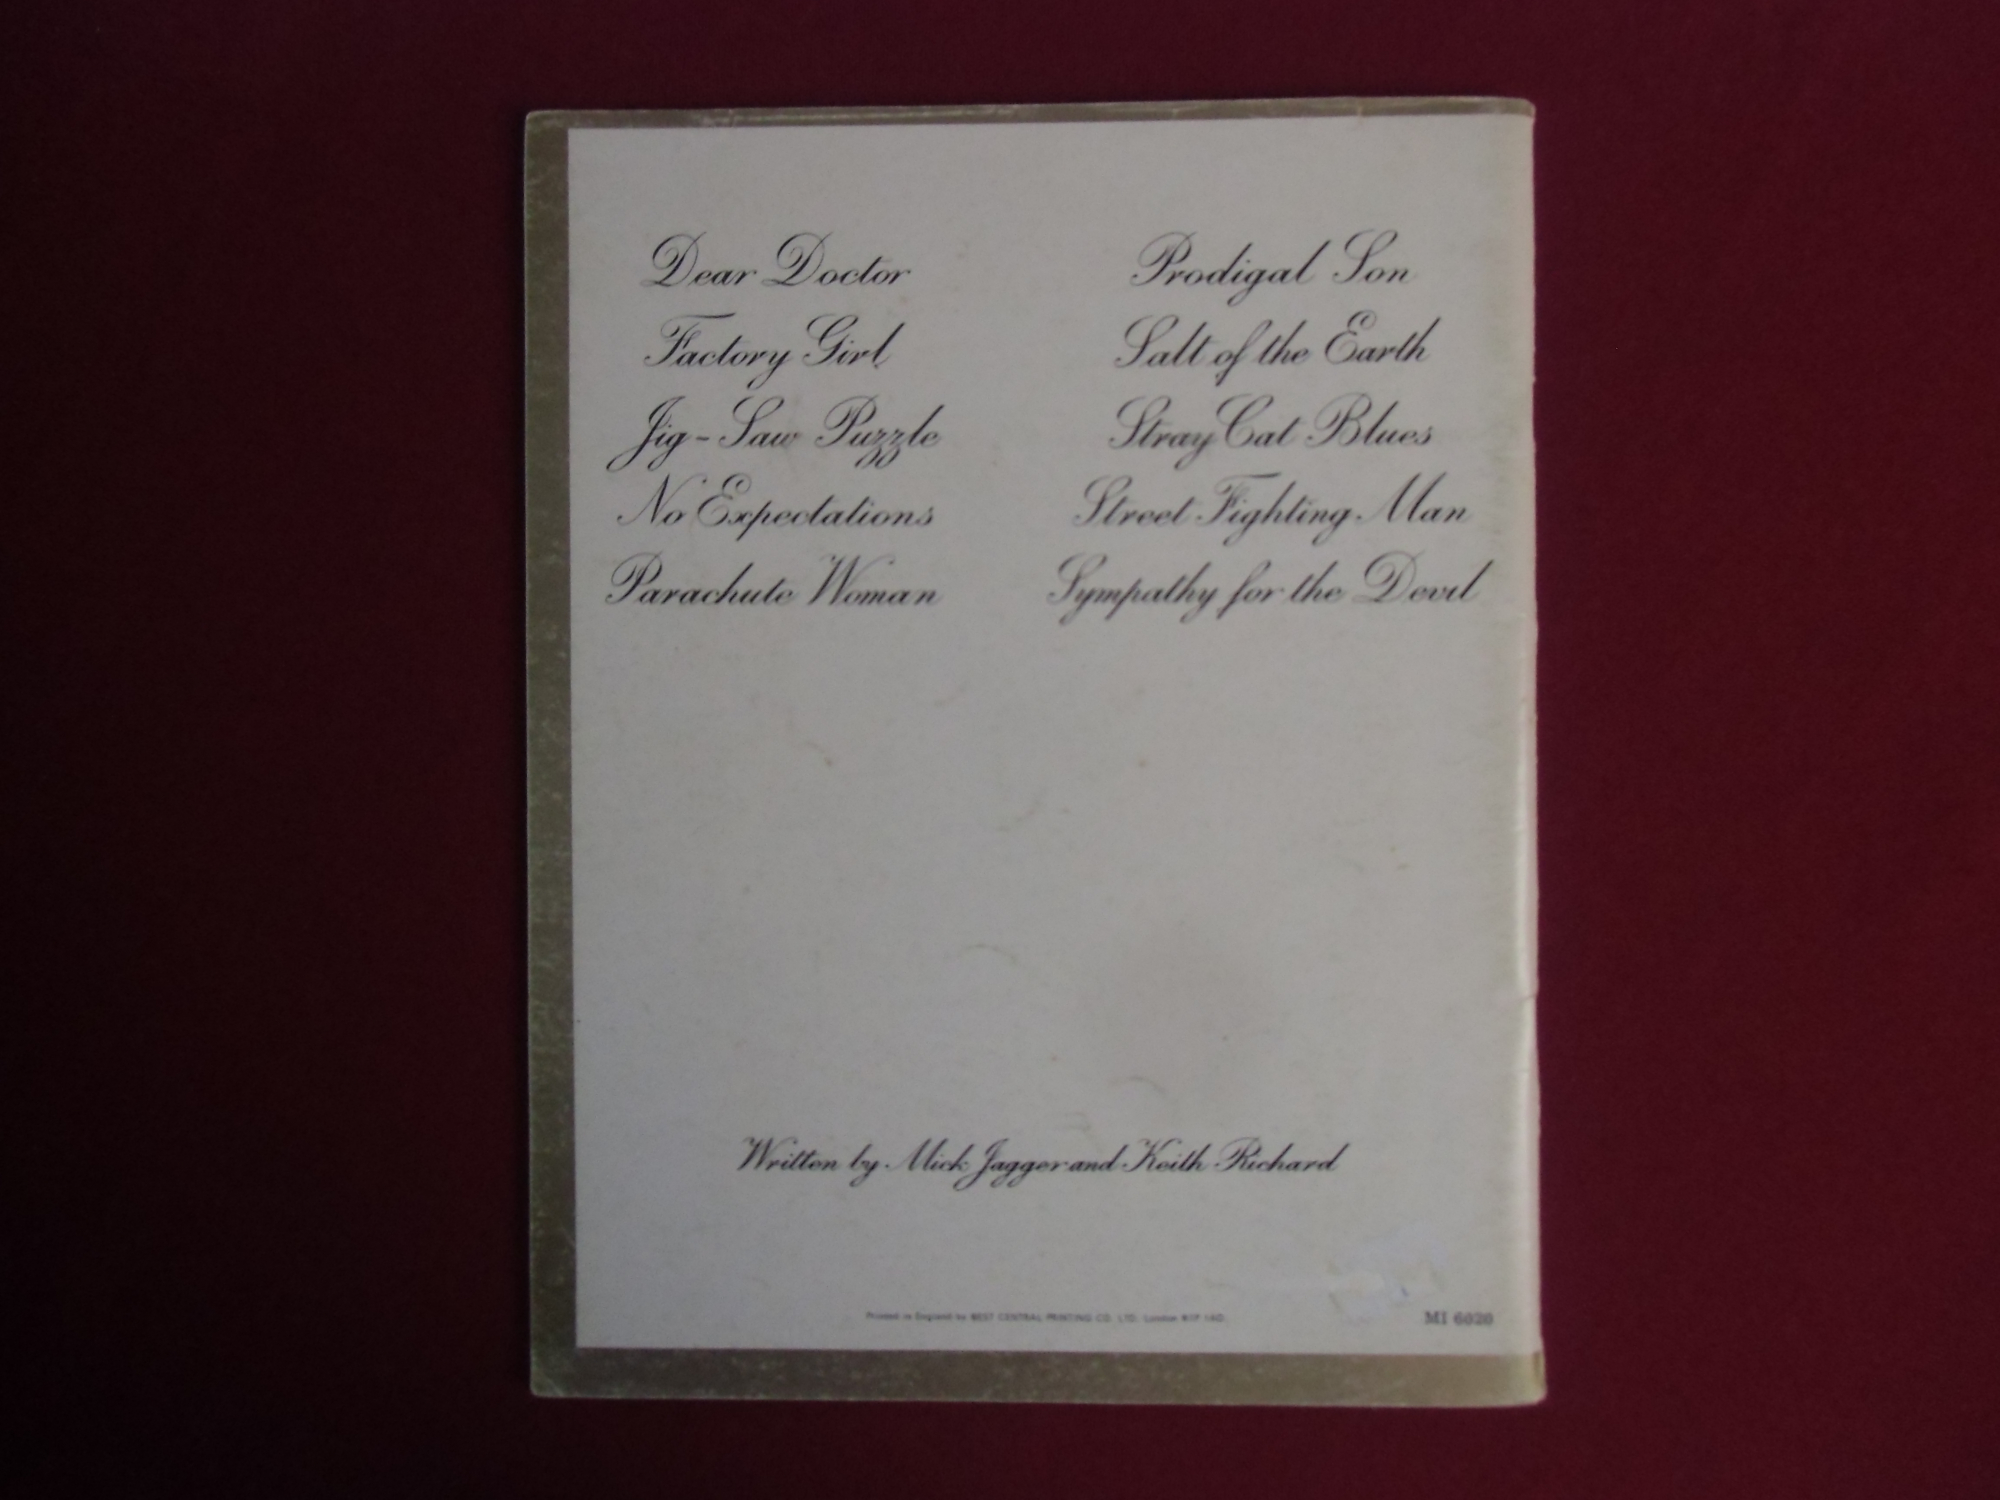 Dear Doctor
Factory Girl
Jig-Saw Puzzle
No Expectations
Parachute Woman
Prodigal Son
Salt of the Earth
Stray Cat Blues
Street Fighting Man
Sympathy for the Devil
Written by Mick Jagger and Keith Richard
Printed in England by WEST CENTRAL PRINTING CO. LTD. London
MI 6020